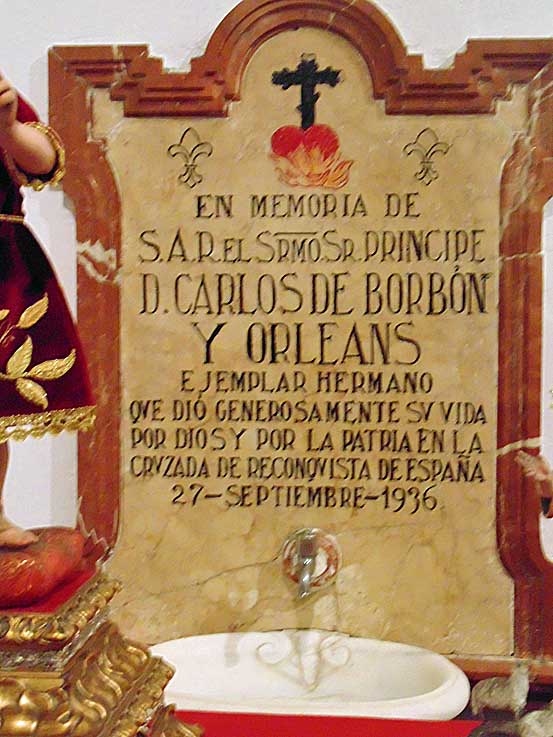 EN MEMORIA DE
S.A.R. EL SRMO. SR. PRINCIPE
D. CARLOS DE BORBÓN
Y ORLEANS
EJEMPLAR HERMANO
QVE DIÓ GENEROSAMENTE SV VIDA
POR DIOS Y POR LA PATRIA EN LA
CRVZADA DE RECONQVISTA DE ESPAÑA
27-SEPTIEMBRE-1936.